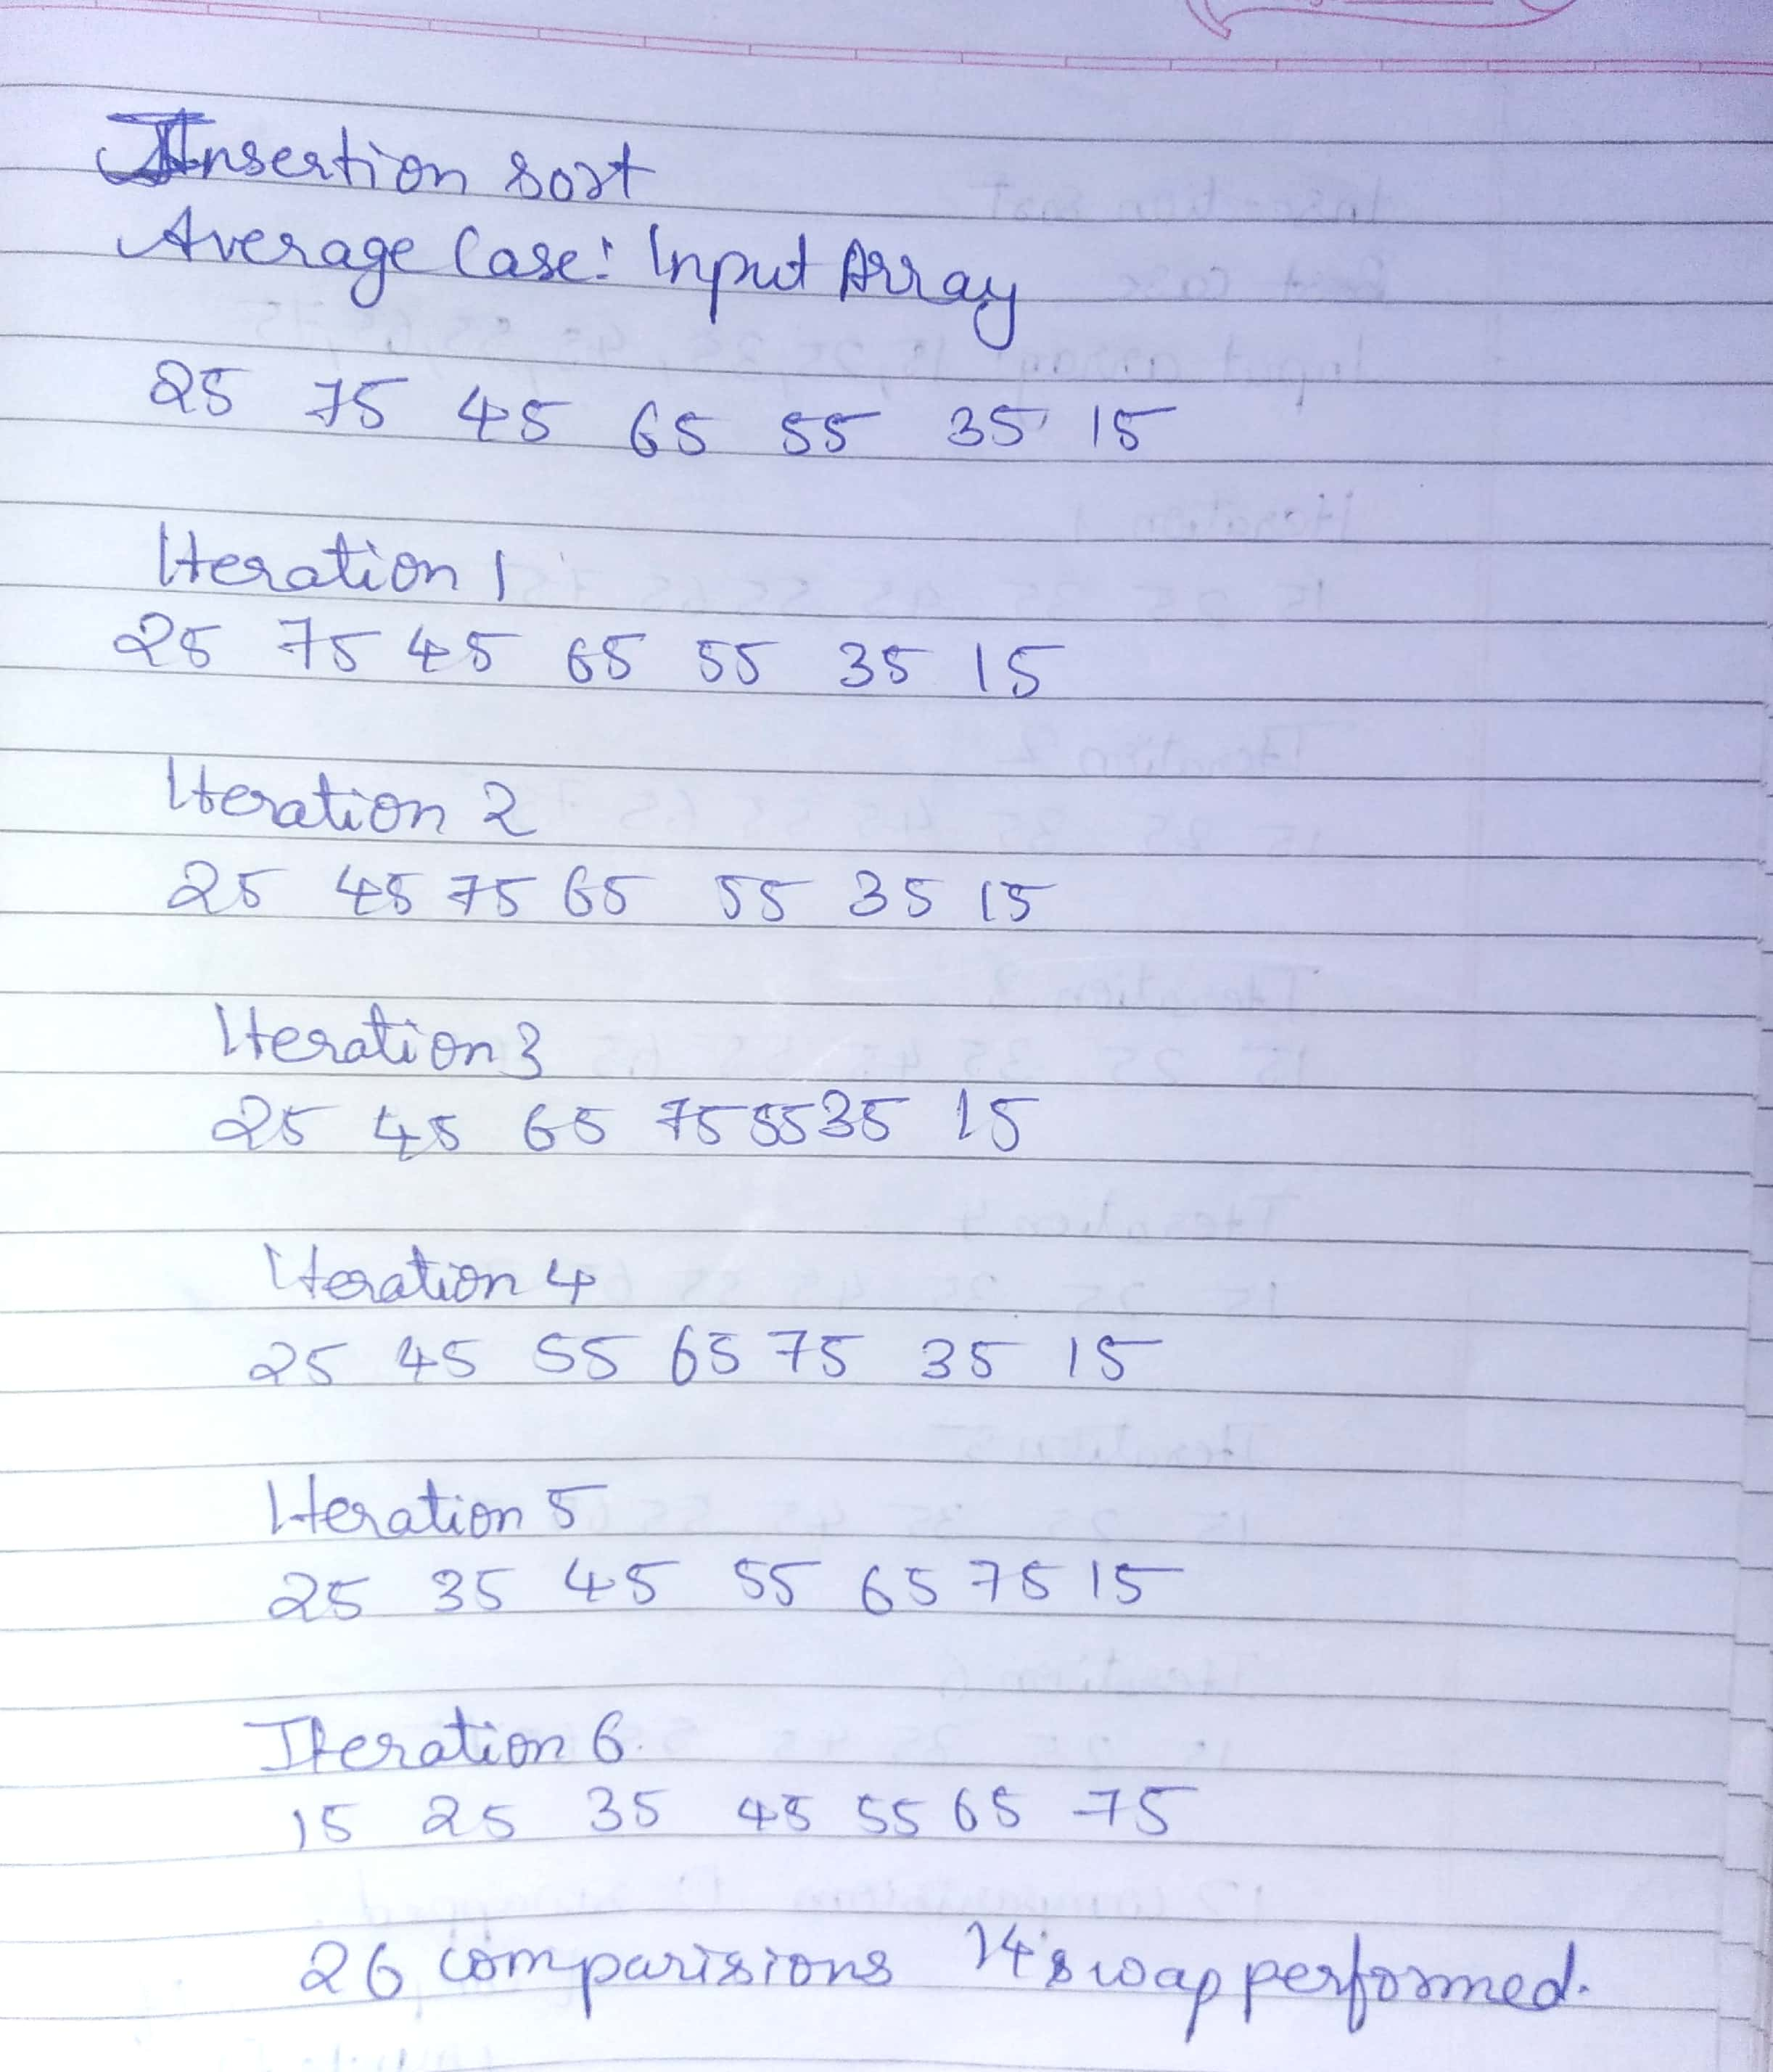 Insertion sort
Average Case: Input Array
25 75 45 65 55 35 15
Iteration 1
25 75 45 65 55 35 15
Iteration 2
25 45 75 65 55 35 15
Iteration 3
25 45 65 75 55 35 15
Iteration 4
25 45 55 65 75 35 15
Iteration 5
25 35 45 55 65 75 15
Iteration 6
15 25 35 45 55 65 75
26 comparisions 14 swap performed.